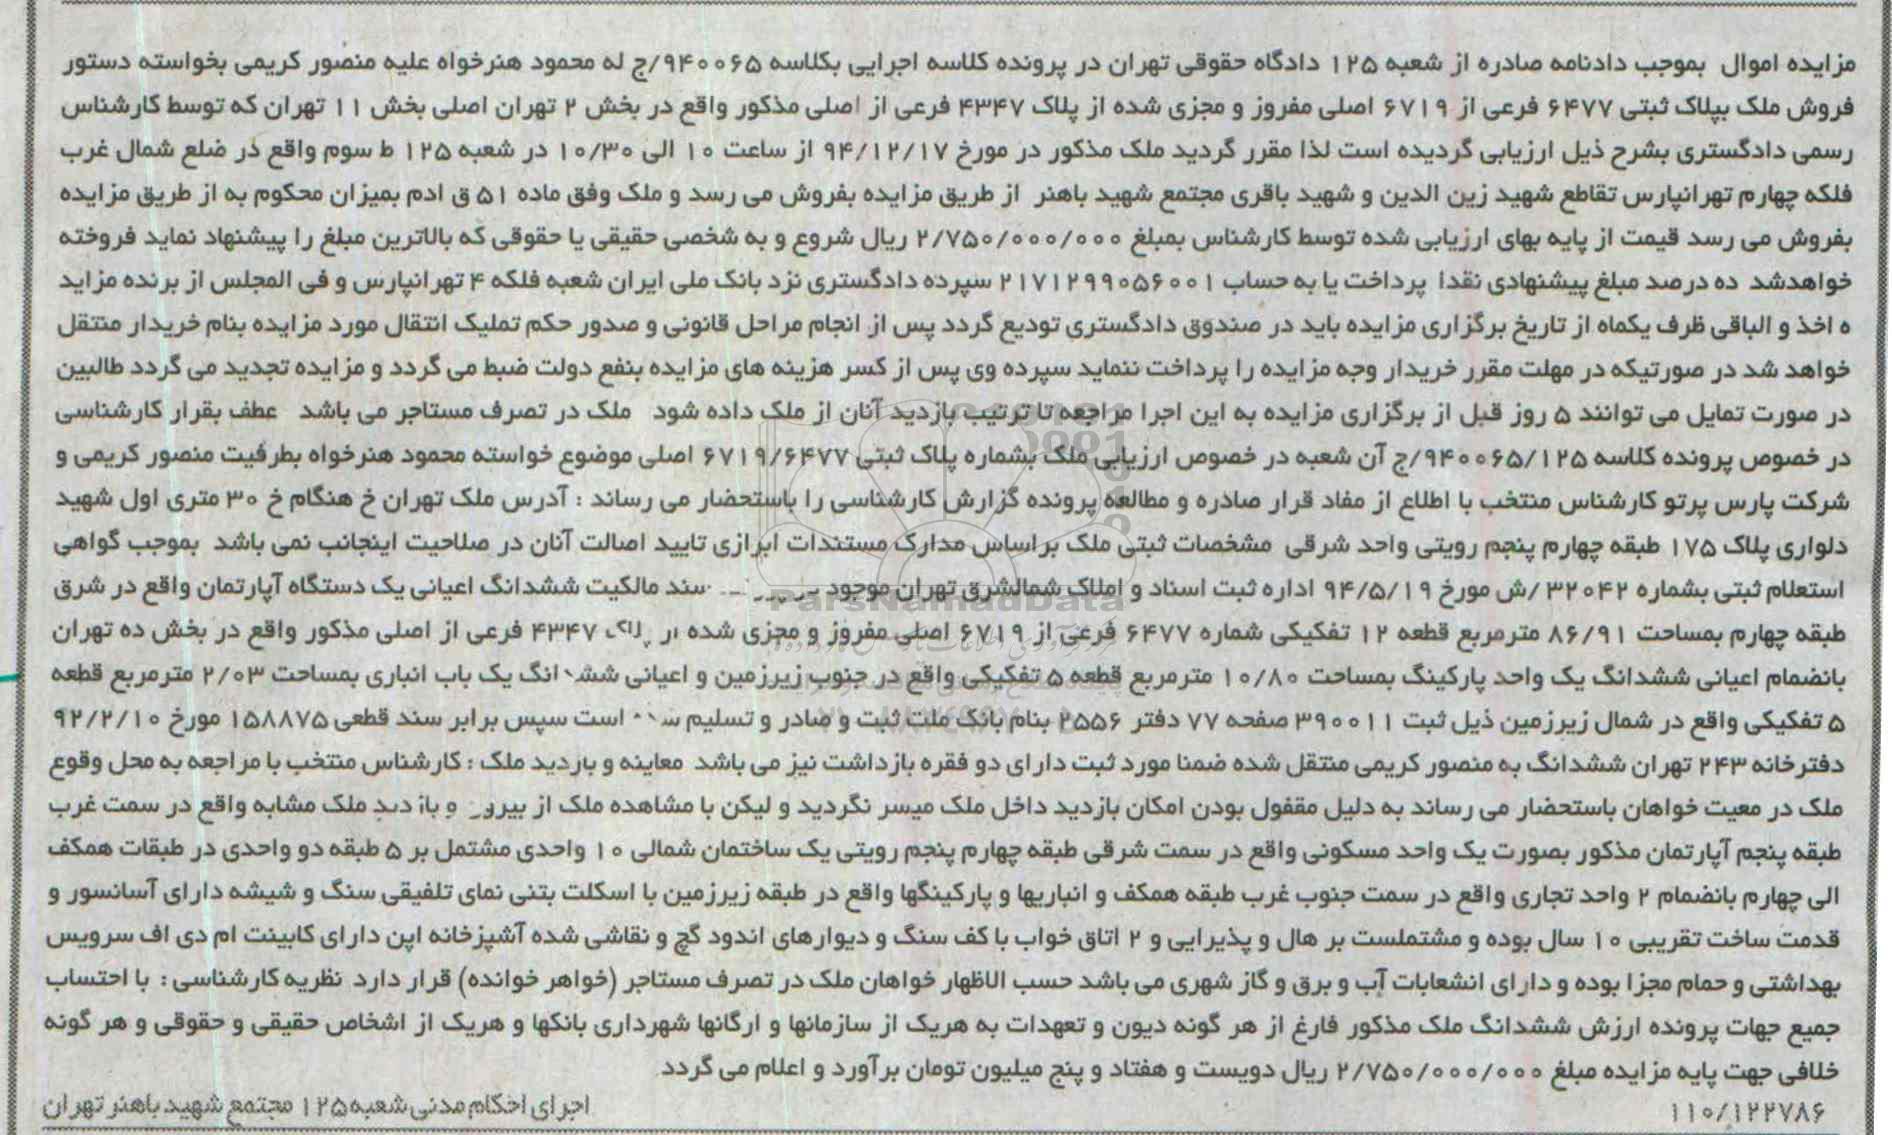 مزایده اموال بموجب دادنامه صادره از شعبه ۱۲۵ دادگاه حقوقی تهران در پرونده کلاسه اجرایی بکلاسه ۹۴۰۰۶۵/ج له محمود هنرخواه علیه منصور کریمی بخواسته دستور
فروش ملک بپلاک ثبتی ۶۴۷۷ فرعی از ۶۷۱۹ اصلی مفروز و مجزی شده از پلاک ۴۳۴۷ فرعی از اصلی مذکور واقع در بخش ۲ تهران اصلی بخش ۱۱ تهران که توسط کارشناس
رسمی دادگستری بشرح ذیل ارزیابی گردیده است لذا مقرر گردید ملک مذکور در مورخ ۹۴/۱۲/۱۷ از ساعت ۱۰ الی ۱۰/۳۰ در شعبه ۱۲۵ ط سوم واقع در ضلع شمال غرب
فلکه چهارم تهرانپارس تقاطع شهید زین الدین و شهید باقری مجتمع شهید باهنر از طریق مزایده بفروش می رسد و ملک وفق ماده ۵۱ ق ادم بمیزان محکوم به از طریق مزایده
بفروش می رسد قیمت از پایه بهای ارزیابی شده توسط کارشناس بمبلغ ۲/۷۵۰/۰۰۰/۰۰۰ ریال شروع و به شخصی حقیقی یا حقوقی که بالاترین مبلغ را پیشنهاد نماید فروخته
خواهدشد ده درصد مبلغ پیشنهادی نقدا پرداخت یا به حساب ۲۱۷۱۲۹۹۰۵۶۰۰۱ سپرده دادگستری نزد بانک ملی ایران شعبه فلکه ۴ تهرانپارس و فی المجلس از برنده مزاید
ه اخذ و الباقی ظرف یکماه از تاریخ برگزاری مزایده باید در صندوق دادگستری تودیع گردد پس از انجام مراحل قانونی و صدور حکم تملیک انتقال مورد مزایده بنام خریدار منتقل
خواهد شد در صورتیکه در مهلت مقرر خریدار وجه مزایده را پرداخت ننماید سپرده وی پس از کسر هزینه های مزایده بنفع دولت ضبط می گردد و مزایده تجدید می گردد طالبین
در صورت تمایل می توانند ۵ روز قبل از برگزاری مزایده به این اجرا مراجعه تا ترتیب بازدید آنان از ملک داده شود ملک در تصرف مستاجر می باشد عطف بقرار کارشناسی
در خصوص پرونده کلاسه ۹۴۰۰۶۵/۱۲۵/ج آن شعبه در خصوص ارزیابی ملک بشماره پلاک ثبتی ۶۷۱۹/۶۴۷۷ اصلی موضوع خواسته محمود هنرخواه بطرفیت منصور کریمی و
شرکت پارس پرتو کارشناس منتخب با اطلاع از مفاد قرار صادره و مطالعه پرونده گزارش کارشناسی را باستحضار می رساند : آدرس ملک تهران خ هنگام خ ۳۰ متری اول شهید
دلواری پلاک ۱۷۵ طبقه چهارم پنجم رویتی واحد شرقی مشخصات ثبتی ملک براساس مدارک مستندات ابرازی تایید اصالت آنان در صلاحیت اینجانب نمی باشد بموجب گواهی
استعلام ثبتی بشماره ۳۲۰۴۲/ش مورخ ۹۴/۵/۱۹ اداره ثبت اسناد و املاک شمالشرق تهران موجود سند مالکیت ششدانگ اعیانی یک دستگاه آپارتمان واقع در شرق
طبقه چهارم بمساحت ۸۶/۹۱ مترمربع قطعه ۱۲ تفکیکی شماره ۶۴۷۷ فرعی از ۶۷۱۹ اصلی مفروز و مجزی شده از پلاک ۴۳۴۷ فرعی از اصلی مذکور واقع در بخش ده تهران
بانضمام اعیانی ششدانگ یک واحد پارکینگ بمساحت ۱۰/۸۰ مترمربع قطعه ۵ تفکیکی واقع در جنوب زیرزمین و اعیانی ششدانگ یک باب انباری بمساحت ۲/۰۳ مترمربع قطعه
۵ تفکیکی واقع در شمال زیرزمین ذیل ثبت ۳۹۰۰۱۱ صفحه ۷۷ دفتر ۲۵۵۶ بنام بانک ملت ثبت و صادر و تسلیم شده است سپس برابر سند قطعی ۱۵۸۸۷۵ مورخ ۹۲/۲/۱۰
دفترخانه ۲۴۳ تهران ششدانگ به منصور کریمی منتقل شده ضمنا مورد ثبت دارای دو فقره بازداشت نیز می باشد معاینه و بازدید ملک : کارشناس منتخب با مراجعه به محل وقوع
ملک در معیت خواهان باستحضار می رساند به دلیل مقفول بودن امکان بازدید داخل ملک میسر نگردید و لیکن با مشاهده ملک از بیرون و بازدید ملک مشابه واقع در سمت غرب
طبقه پنجم آپارتمان مذکور بصورت یک واحد مسکونی واقع در سمت شرقی طبقه چهارم پنجم رویتی یک ساختمان شمالی ۱۰ واحدی مشتمل بر ۵ طبقه دو واحدی در طبقات همکف
الی چهارم بانضمام ۲ واحد تجاری واقع در سمت جنوب غرب طبقه همکف و انباریها و پارکینگها واقع در طبقه زیرزمین با اسکلت بتنی نمای تلفیقی سنگ و شیشه دارای آسانسور و
قدمت ساخت تقریبی ۱۰ سال بوده و مشتملست بر هال و پذیرایی و ۲ اتاق خواب با کف سنگ و دیوارهای اندود گچ و نقاشی شده آشپزخانه اپن دارای کابینت ام دی اف سرویس
بهداشتی و حمام مجزا بوده و دارای انشعابات آب و برق و گاز شهری می باشد حسب الاظهار خواهان ملک در تصرف مستاجر (خواهر خوانده) قرار دارد نظریه کارشناسی : با احتساب
جمیع جهات پرونده ارزش ششدانگ ملک مذکور فارغ از هر گونه دیون و تعهدات به هریک از سازمانها و ارگانها شهرداری بانکها و هریک از اشخاص حقیقی و حقوقی و هر گونه
خلافی جهت پایه مزایده مبلغ ۲/۷۵۰/۰۰۰/۰۰۰ ریال دویست و هفتاد و پنج میلیون تومان برآورد و اعلام می گردد
اجرای احکام مدنی شعبه ۱۲۵ مجتمع شهید باهنر تهران
۱۱۰/۱۲۲۷۸۶
ParsNamadData